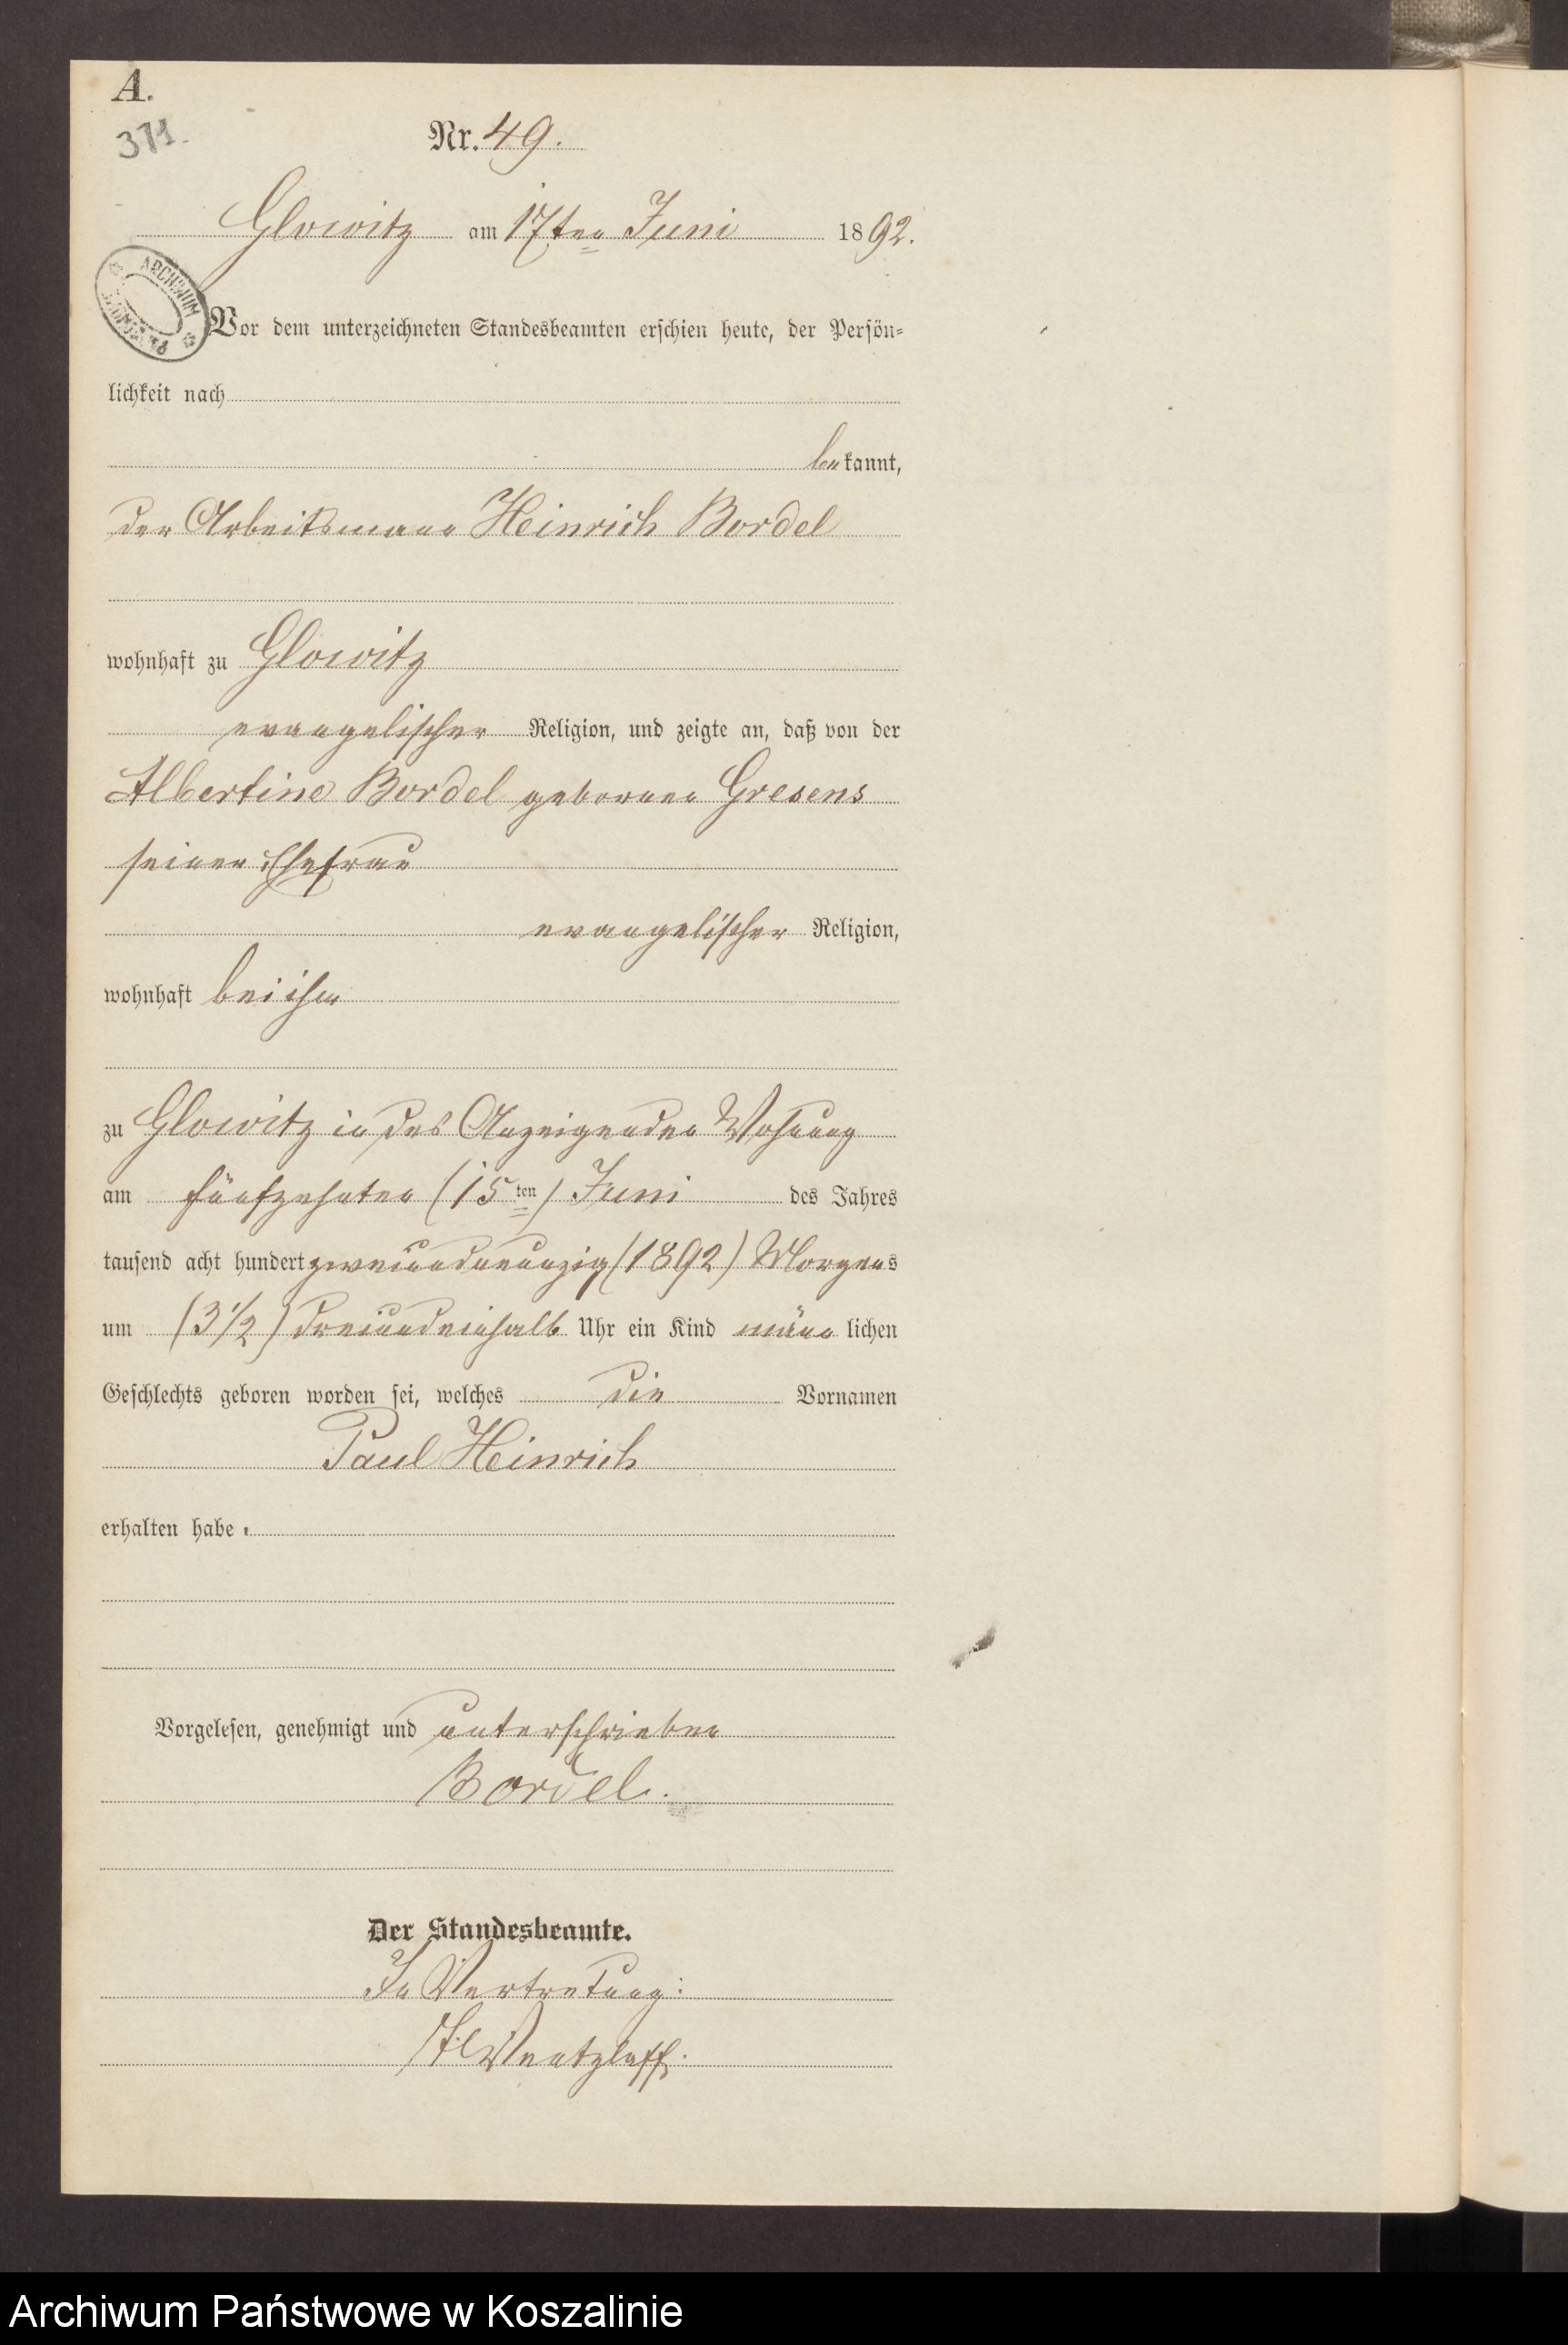 A.
371.
Nr. 49.
Glowitz am 17ten Juni 1892.
ARCHIWUM
Vor dem unterzeichneten Standesbeamten erschien heute, der Persön-
lichkeit nach
bekannt,
der Arbeitsmann Heinrich Bordel
wohnhaft zu Glowitz
evangelischer Religion, und zeigte an, daß von der
Albertine Bordel geborenen Gresens
seiner Ehefrau
evangelischer Religion,
wohnhaft bei ihm
zu Glowitz in des Anzeigenden Wohnung
am fünfzehnten (15ten) Juni des Jahres
tausend acht hundert zweiundneunzig (1892) Morgens
um (3 1/2) dreiundeinhalb Uhr ein Kind männlichen
Geschlechts geboren worden sei, welches die Vornamen
Paul Heinrich
erhalten habe.
Vorgelesen, genehmigt und unterschrieben
Bordel.
Der Standesbeamte.
In Vertretung:
Wentzlaff.
Archiwum Państwowe w Koszalinie